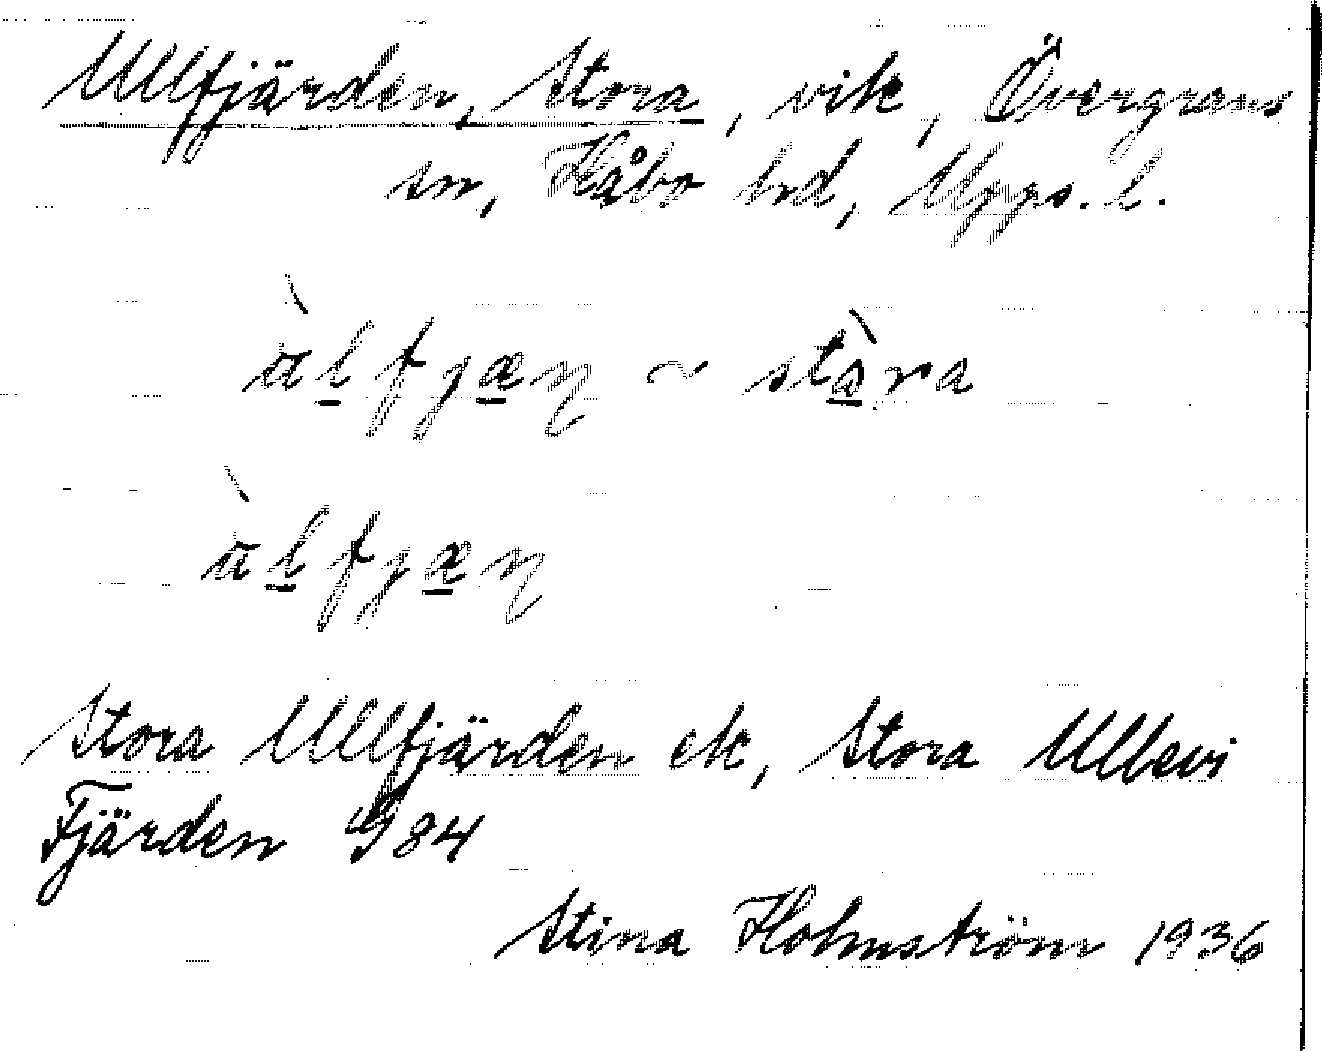 Ullfjärden, Stora, vik, Övergrans
sn, Håbo hd, Upps. l.
àlfjæn ~ stàra
àlfjæn
Stora Ullfjärden ek, Stora Ullevi
Fjärden G84
Stina Holmström 1936